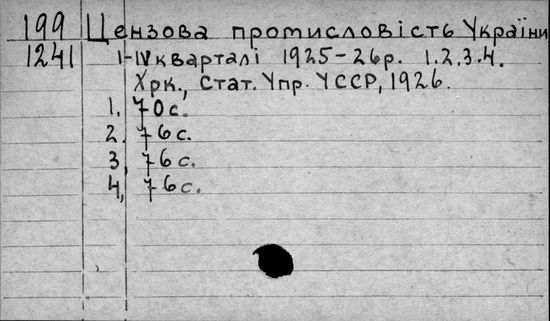 199 Цензова промисловість України
1241 I-IV кварталі 1925-26р. 1.2.3.4.
Хрк., Стат. Упр. УССР, 1926.
1. 70с.
2. 76с.
3, 76с.
4, 76с.